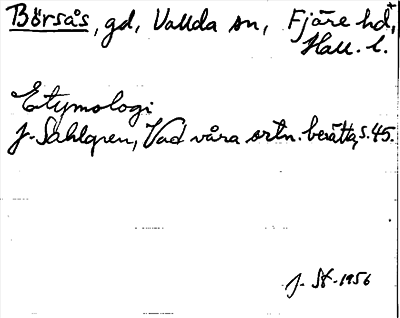 Börsås, gd, Vallda sn, Fjäre hd,
Hall. l.
Etymologi
J. Sahlgren, Vad våra ortn. berätta, s. 45.
J. St. 1956